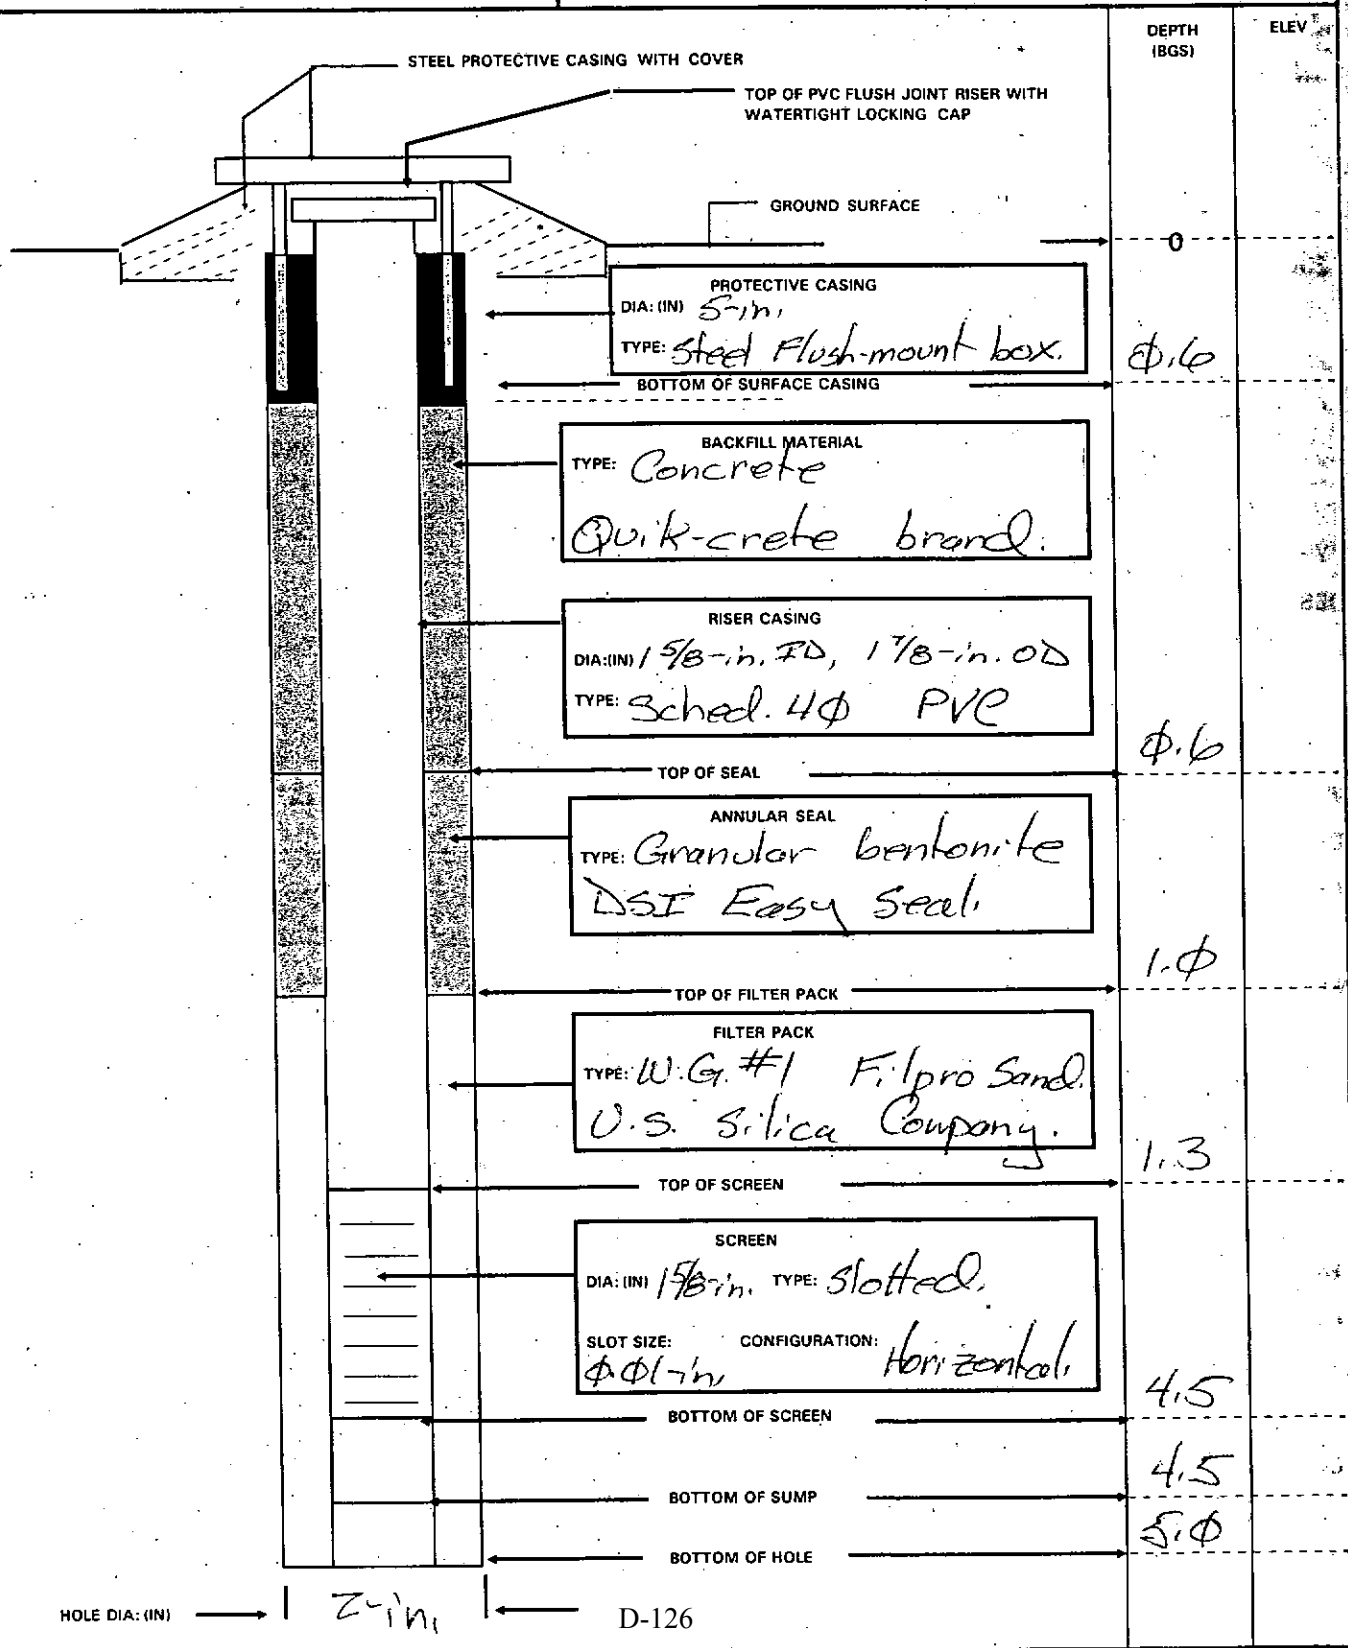 DEPTH ELEV
(BGS)
STEEL PROTECTIVE CASING WITH COVER
TOP OF PVC FLUSH JOINT RISER WITH
WATERTIGHT LOCKING CAP
GROUND SURFACE
0
PROTECTIVE CASING
DIA: (IN) 5-in.
TYPE: Steel Flush-mount box.
0.6
BOTTOM OF SURFACE CASING
BACKFILL MATERIAL
TYPE: Concrete
Quik-crete brand.
RISER CASING
DIA:(IN) 1 5/8-in. ID, 1 7/8-in. OD
TYPE: Sched. 40 PVC
0.6
TOP OF SEAL
ANNULAR SEAL
TYPE: Granular bentonite
DSI Easy Seal.
1.0
TOP OF FILTER PACK
FILTER PACK
TYPE: W.G. #1 Filpro Sand.
U.S. Silica Company.
1.3
TOP OF SCREEN
SCREEN
DIA: (IN) 1 5/8-in. TYPE: Slotted.
SLOT SIZE: CONFIGURATION:
0.01-in. Horizontal.
4.5
BOTTOM OF SCREEN
4.5
BOTTOM OF SUMP
5.0
BOTTOM OF HOLE
HOLE DIA: (IN) 2-in. D-126